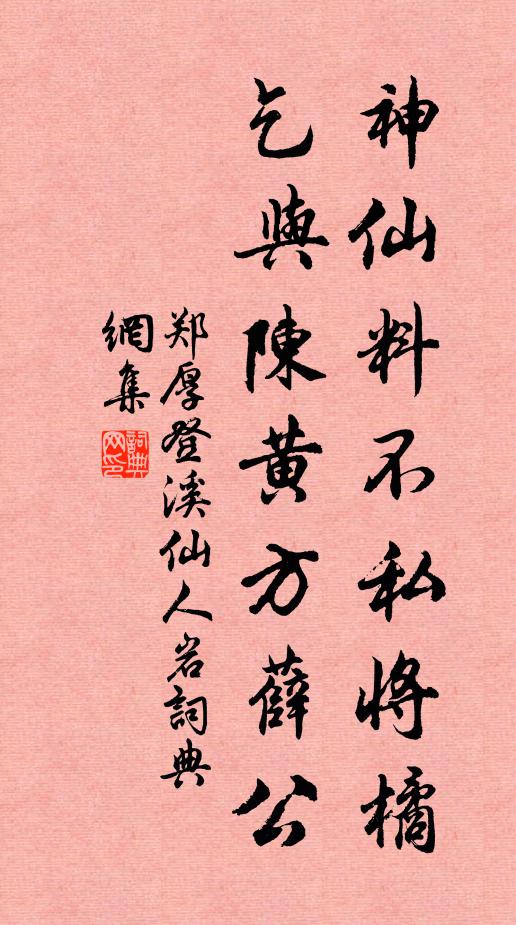 神仙料不私將橘
乞與陳黃方薛公
郑厚登溪仙人岩詞典
網集
詞典
网印